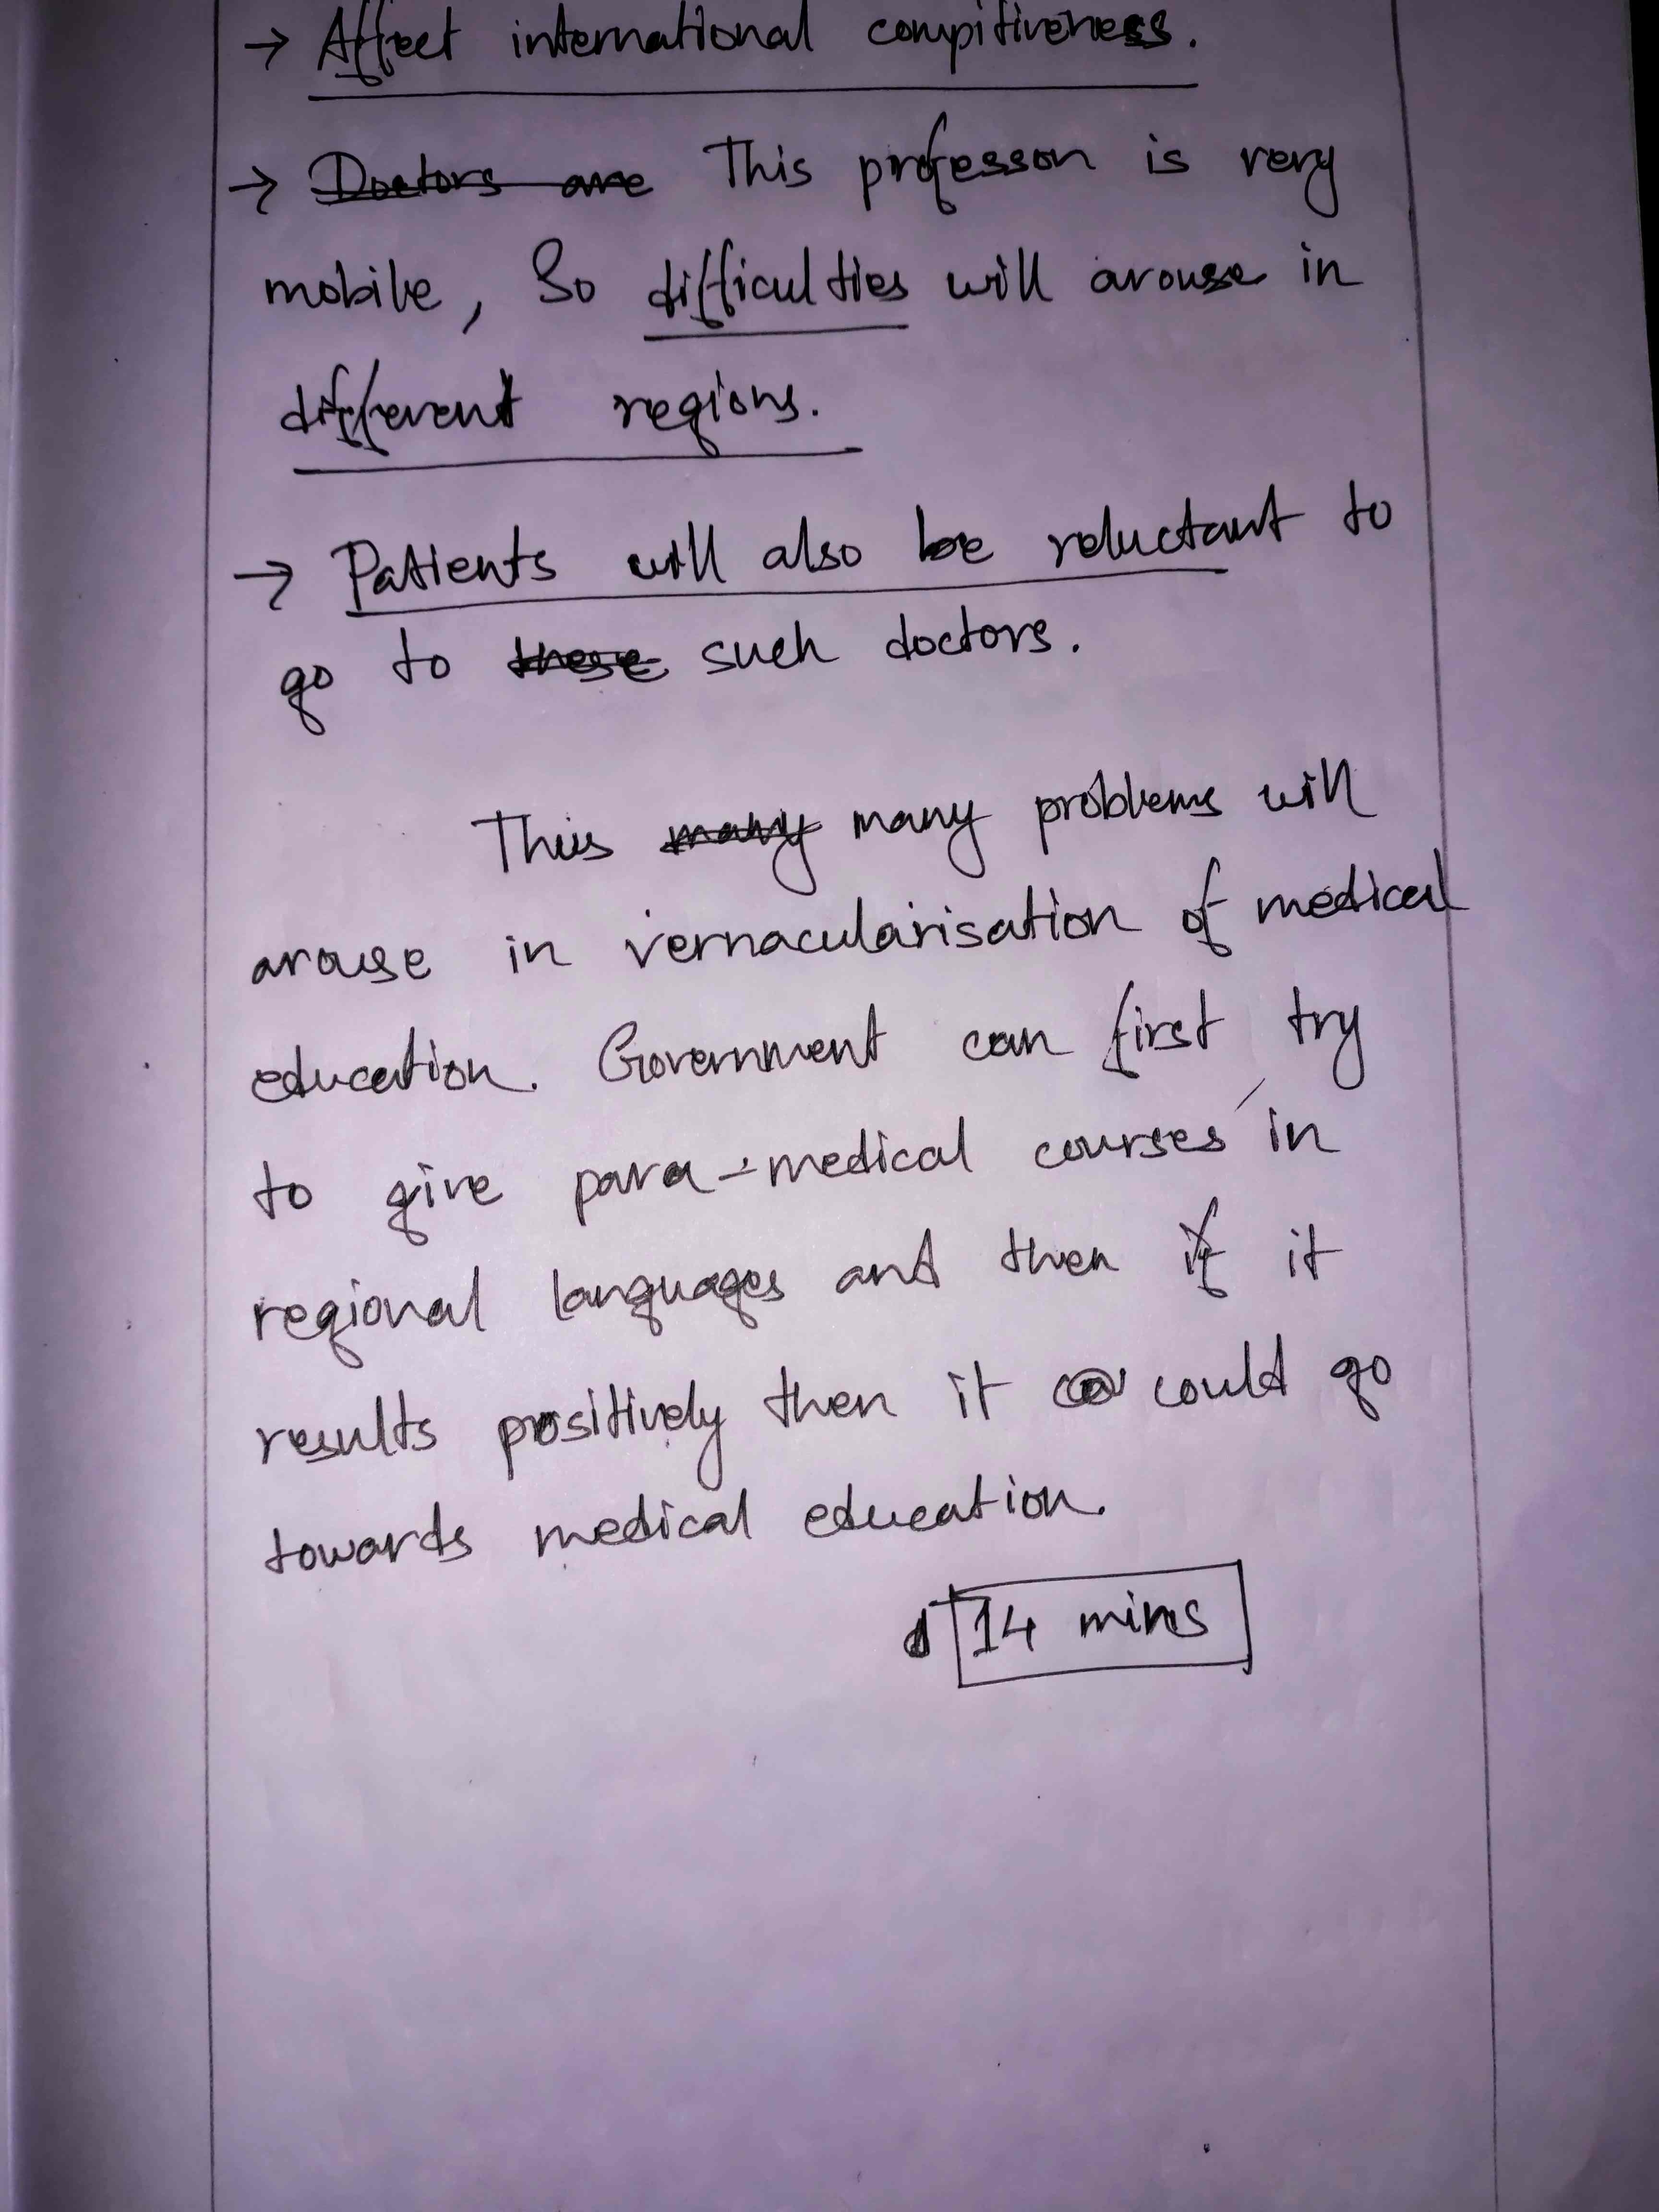 → Affect international compitiveness.
→ Doctors are This professon is very
mobile, So difficulties will arouse in
different regions.
→ Patients will also be reluctant to
go to these such doctors.
Thus many many problems will
arouse in vernacularisation of medical
education. Government can first try
to give para-medical courses in
regional languages and then if it
results positively then it could go
towards medical education.
14 mins